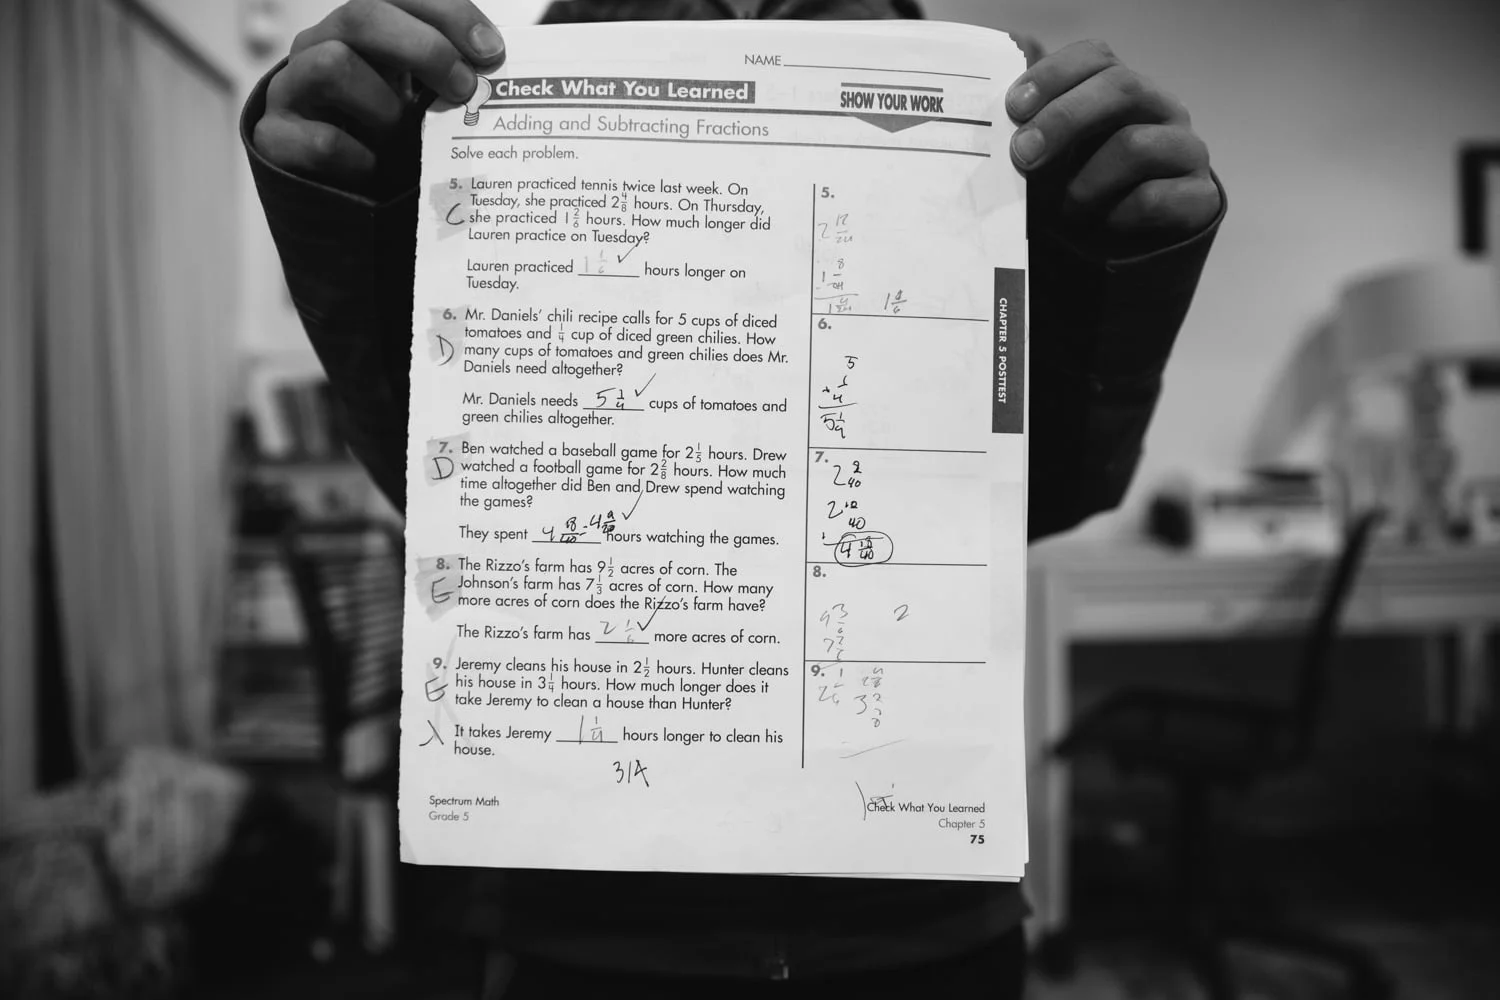 NAME
Check What You Learned
SHOW YOUR WORK
Adding and Subtracting Fractions
Solve each problem.
5. Lauren practiced tennis twice last week. On
Tuesday, she practiced 2 4/8 hours. On Thursday,
C she practiced 1 2/6 hours. How much longer did
Lauren practice on Tuesday?
Lauren practiced 1 1/6 ✓ hours longer on
Tuesday.
6. Mr. Daniels' chili recipe calls for 5 cups of diced
tomatoes and 1/4 cup of diced green chilies. How
D many cups of tomatoes and green chilies does Mr.
Daniels need altogether?
Mr. Daniels needs 5 1/4 ✓ cups of tomatoes and
green chilies altogether.
7. Ben watched a baseball game for 2 1/5 hours. Drew
D watched a football game for 2 2/8 hours. How much
time altogether did Ben and Drew spend watching
the games?
They spent 4 18/40 - 4 9/20 ✓ hours watching the games.
8. The Rizzo's farm has 9 1/2 acres of corn. The
Johnson's farm has 7 1/3 acres of corn. How many
E more acres of corn does the Rizzo's farm have?
The Rizzo's farm has 2 1/6 ✓ more acres of corn.
9. Jeremy cleans his house in 2 1/2 hours. Hunter cleans
E his house in 3 1/4 hours. How much longer does it
take Jeremy to clean a house than Hunter?
It takes Jeremy 1 1/4 hours longer to clean his
house.
3/4
5.
2 12/24
1 8/24
1 4/24
6.
5
+ 1/4
5 1/4
7.
2
2 10/40
4 18/40
8.
9 3/6
2
7 2/6
9.
CHAPTER 5 POSTTEST
Spectrum Math
Grade 5
Check What You Learned
Chapter 5
75